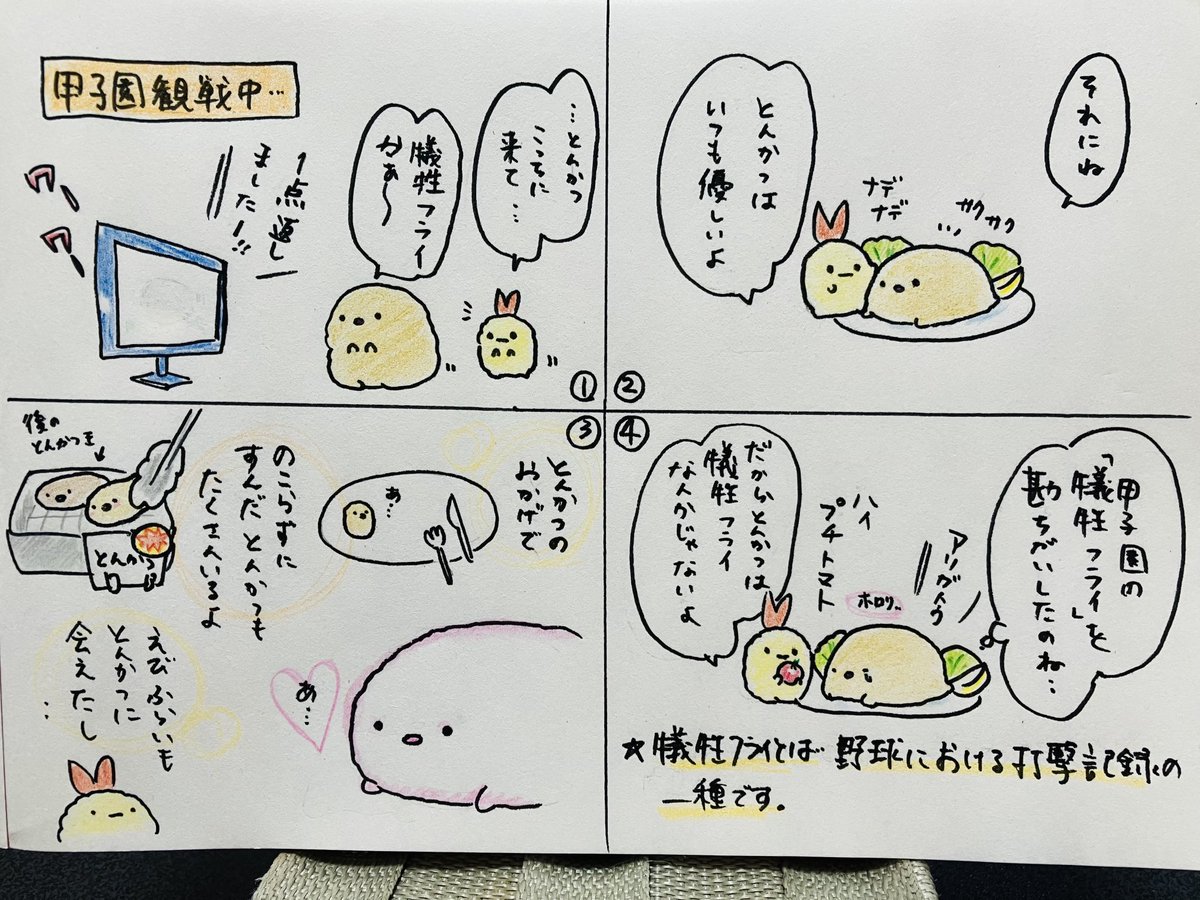 甲子園観戦中…
ワー
ワー
1点返し
ました!!
…とんかつ
こっちに
来て…
犠牲フライ
かぁ〜
①
②
それにね
とんかつは
いつも優しいよ
ナデ
ナデ
サク
サク
③
とんかつの
おかげで
あ…
のこらずに
すんだとんかつも
たくさんいるよ
後の
とんかつ王
とんかつ
えびふらいも
とんかつに
会えたし
…
あ…
④
甲子園の
「犠牲フライ」を
勘ちがいしたのね…
アリガトウ
ホロリ…
ハイ
プチトマト
だからとんかつは
犠牲フライ
なんかじゃないよ
☆犠牲フライとは 野球における打撃記録の
一種です。